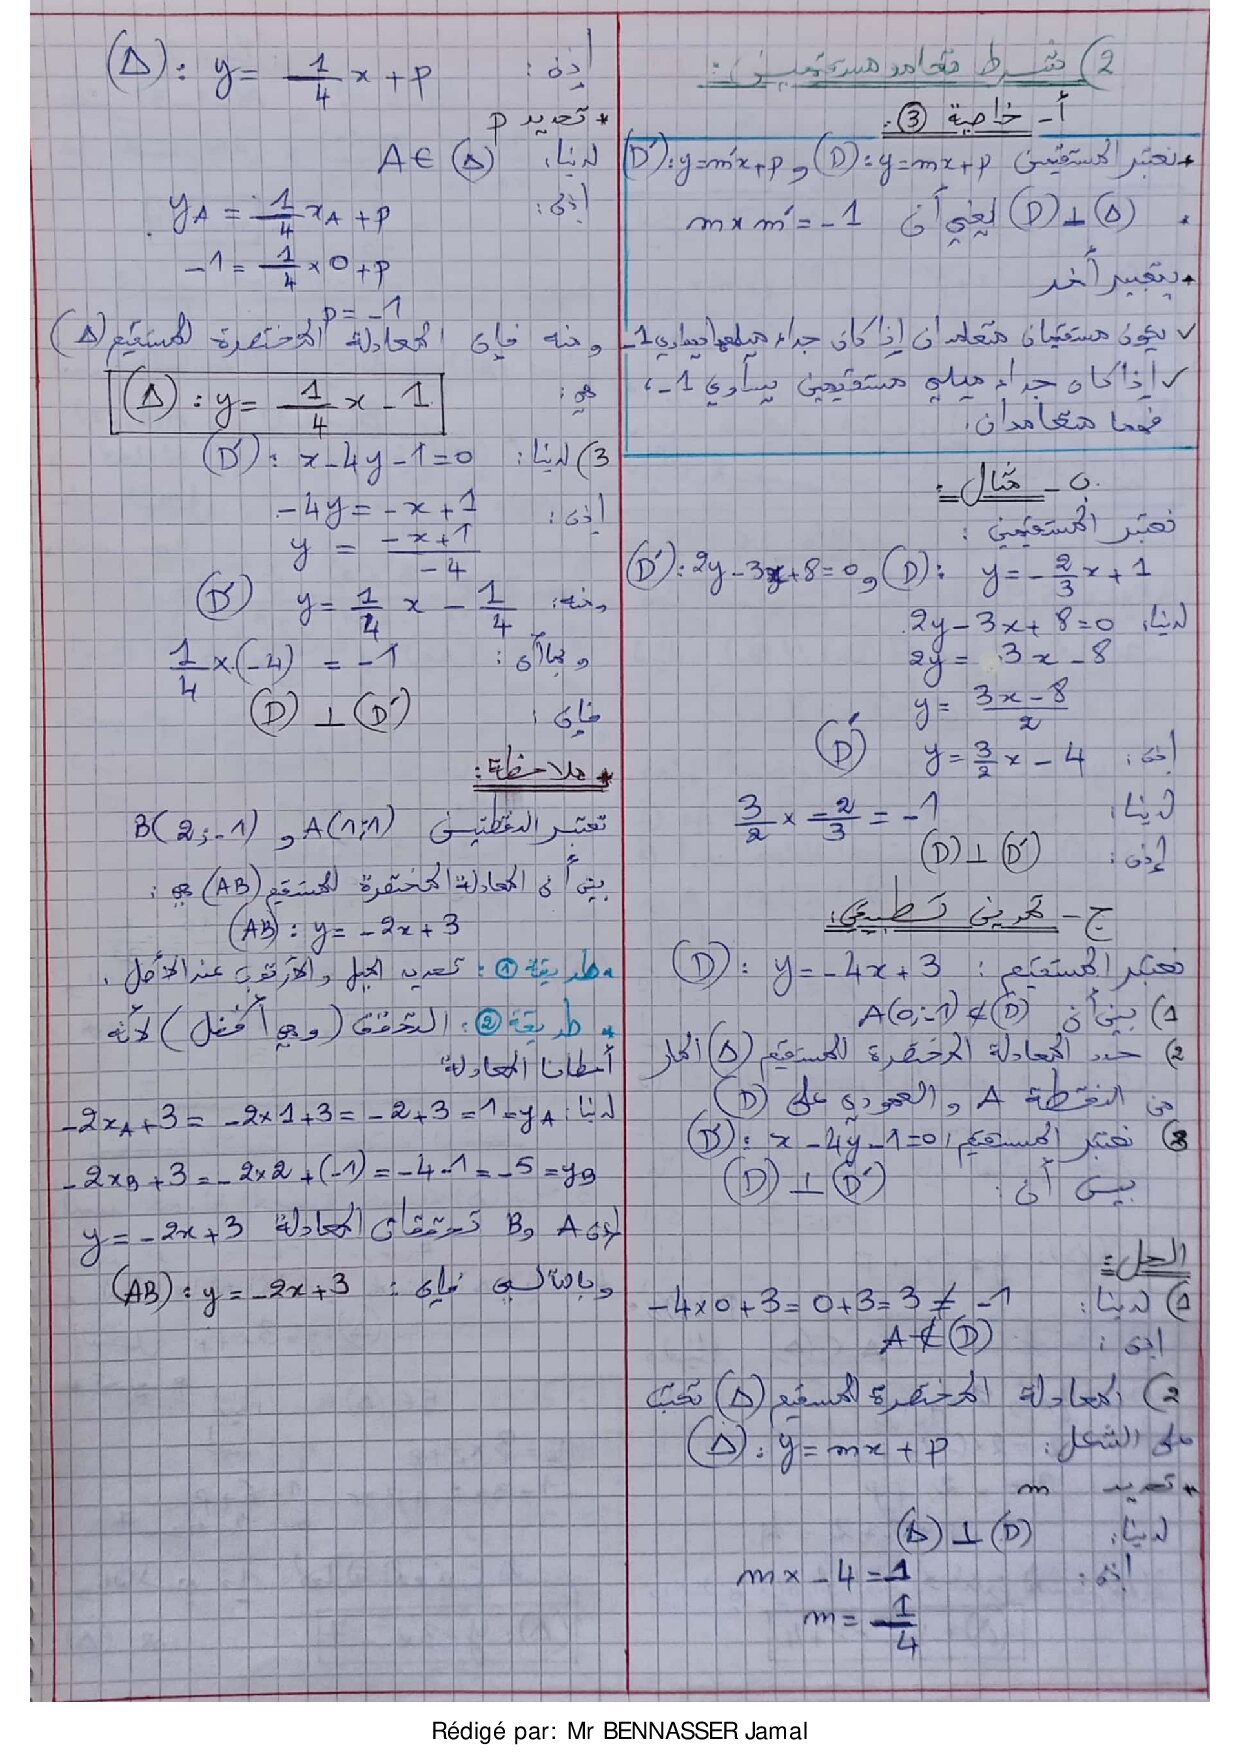 2) شرط تعامد مستقيمين :
أ- خاصية ③:
* نعتبر المستقيمين (D): y=mx+p و (D'): y=m'x+p
* (D) ⊥ (Δ) يعني أن m×m' = -1
* بتعبير أخر
✓ يكون مستقيمان متعامدان إذا كان جداء ميلهما يساوي -1
✓ إذا كان جداء ميلي مستقيمين يساوي -1،
فهما متعامدان.
- مثال :
نعتبر المستقيمين :
(D): y = -2/3 x + 1 و (D'): 2y - 3x + 8 = 0
لدينا: 2y - 3x + 8 = 0
2y = 3x - 8
y = (3x - 8)/2
إذن: (D') y = 3/2 x - 4
لدينا: 3/2 × -2/3 = -1
إذن: (D) ⊥ (D')
ج- تمرين تطبيقي:
نعتبر المستقيم : (D): y = -4x + 3
1) بين أن A(0;-1) ∉ (D)
2) حدد المعادلة المختصرة للمستقيم (Δ) المار
من النقطة A والعمودي على (D)
3) نعتبر المستقيم (D'): x - 4y - 1 = 0
بين أن : (D) ⊥ (D')
الحل :
1) لدينا: -4×0 + 3 = 0 + 3 = 3 ≠ -1
إذن : A ∉ (D)
2) المعادلة المختصرة للمستقيم (Δ) تكتب
على الشكل: (Δ): y = mx + p
* تحديد m
لدينا: (Δ) ⊥ (D)
إذن: m × -4 = -1
m = -1/4
إذن : (Δ): y = 1/4 x + p
* تحديد p
لدينا: A ∈ (Δ)
إذن: yA = 1/4 xA + p
-1 = 1/4 × 0 + p
p = -1
ومنه فإن المعادلة المختصرة للمستقيم (Δ)
هي: (Δ): y = 1/4 x - 1
3) لدينا: (D'): x - 4y - 1 = 0
إذن: -4y = -x + 1
y = (-x + 1)/-4
ومنه: (D') y = 1/4 x - 1/4
وبما أن: 1/4 × (-4) = -1
فإن : (D) ⊥ (D')
* ملاحظة :
نعتبر النقطتين A(1;1) و B(2;-1)
بين أن المعادلة المختصرة للمستقيم (AB) هي :
(AB): y = -2x + 3
* طريقة ①: تحديد الميل والأرتوب عند الأصل .
* طريقة ②: التحقق (وهي أفضل) لأنه
أعطانا المعادلة
لدينا: -2xA + 3 = -2×1 + 3 = -2 + 3 = 1 = yA
-2xB + 3 = -2×2 + (-1) = -4 - 1 = -5 = yB
إذن A و B تحققان المعادلة y = -2x + 3
وبالتالي فإن : (AB): y = -2x + 3
Rédigé par: Mr BENNASSER Jamal